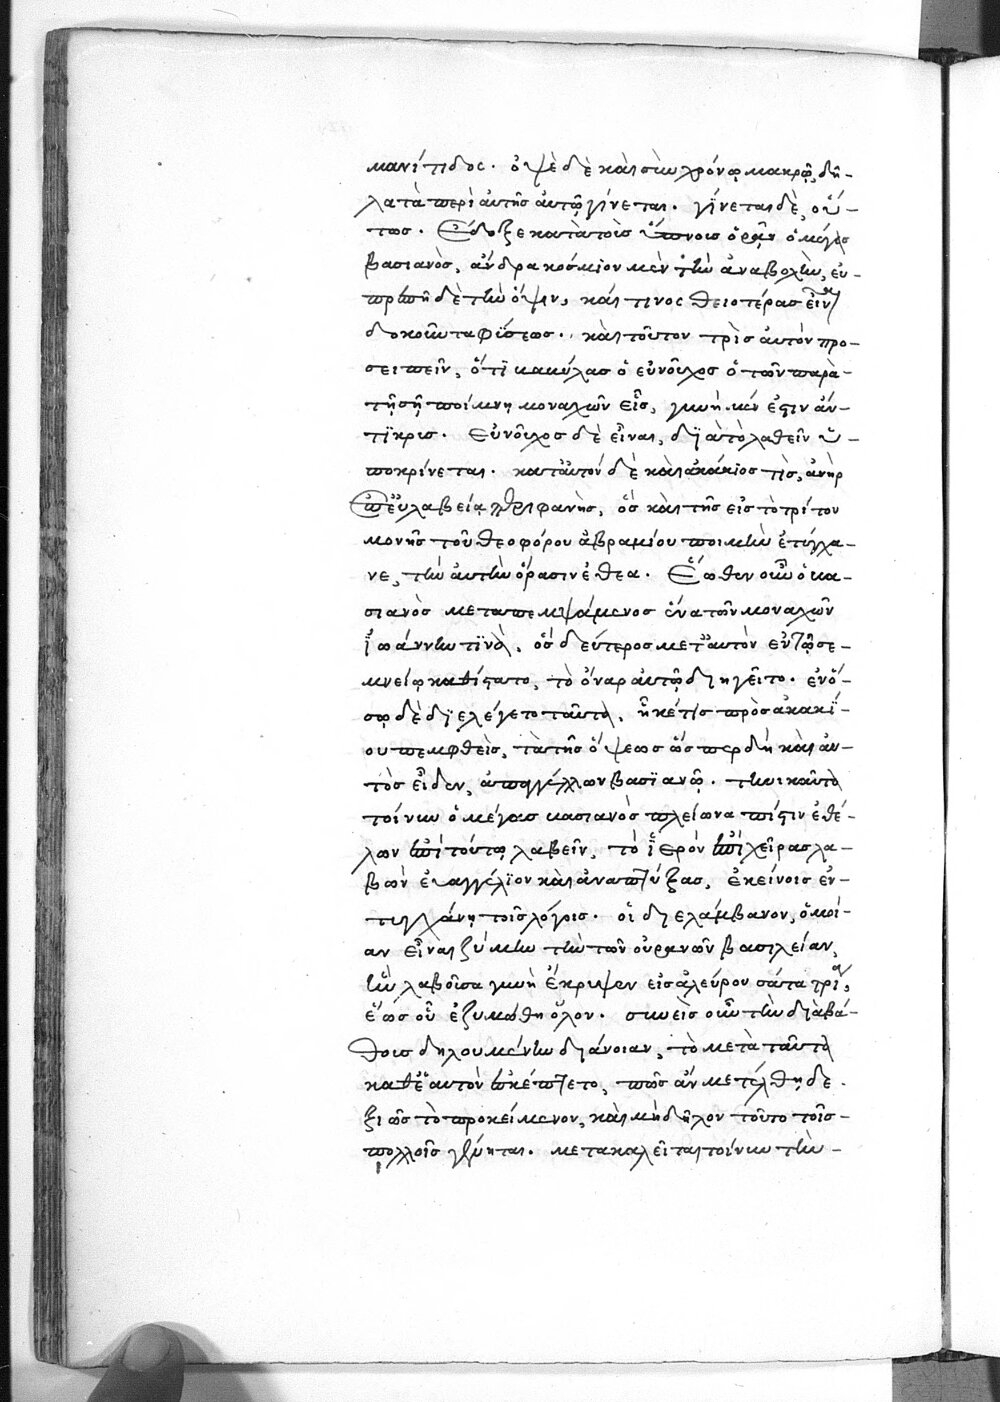 μανίτιδος. ὀψὲ δὲ καὶ σὺν χρόνῳ μακρῷ, δῆ-
λα τὰ περὶ αὐτῆς αὐτῷ γίνεται. γίνεται δὲ, οὕ-
τως. Ἔδοξε κατὰ τοὺς ὕπνους ὁρᾶν ὁ μέγας
βασιανὸς, ἄνδρα κόσμιον μὲν τὴν ἀναβολὴν, εὐ-
πρεπῆ δὲ τὴν ὄψιν, καί τινος θειοτέρας εἶναι
δοκοῦντα φύσεως. καὶ τοῦτον τρὶς αὐτὸν προ-
σειπεῖν, ὅτι βαβύλας ὁ εὐνοῦχος ὁ τῶν παρὰ
τῇ σῇ ποίμνῃ μοναχῶν εἷς, γυνή μέν ἐστιν ἄν-
τικρυς. Εὐνοῦχος δὲ εἶναι, διὰ τὸ λαθεῖν ὑ-
ποκρίνεται. κατ' αὐτὸν δὲ καὶ ἀκάκιός τις, ἀνὴρ
ἐπ' εὐλαβείᾳ περιφανὴς, ὃς καὶ τῆς εἰς τὸ τρίτον
μονῆς τοῦ θεοφόρου ἀβραμίου ποιμὴν ἐτύγχα-
νε, τὴν αὐτὴν ὅρασιν ἐθεᾶ. Ἕωθεν οὖν ὁ βα-
σιανὸς μεταπεμψάμενος ἕνα τῶν μοναχῶν
ἰωάννην τινὰ, ὃς δεύτερος μετ' αὐτὸν ἐν τῷ σε-
μνείῳ καθίστατο, τὸ ὄναρ αὐτῷ διηγεῖτο. ἐν ὅ-
σῳ δὲ διελέγετο ταῦτα, ἧκέ τις πρὸς ἀκακί-
ου πεμφθεὶς, τὰ τῆς ὄψεως ὥσπερ δὴ καὶ αὐ-
τὸς εἶδεν, ἀπαγγέλλων βασιανῷ. τηνικαῦτα
τοίνυν ὁ μέγας βασιανὸς πλείονα πίστιν ἐθέ-
λων ἐπὶ τούτῳ λαβεῖν, τὸ ἱερὸν ἐπὶ χεῖρας λα-
βὼν εὐαγγέλιον καὶ ἀναπτύξας, ἐκείνοις ἐν-
τυγχάνει τοῖς λόγοις. οἳ διελάμβανον, ὁμοί-
αν εἶναι ζύμῃ τὴν τῶν οὐρανῶν βασιλείαν,
ἣν λαβοῦσα γυνὴ ἔκρυψεν εἰς ἀλεύρου σάτα τρία,
ἕως οὗ ἐζυμώθη ὅλον. συνεὶς οὖν τὴν διὰ βά-
θους δηλουμένην διάνοιαν, τὸ μετὰ ταῦτα
καθ' ἑαυτὸν ἐσκέπτετο, πῶς ἂν μετέλθῃ δε-
ξιῶς τὸ προκείμενον, καὶ μὴ δῆλον τοῦτο τοῖς
πολλοῖς γένηται. μετακαλεῖται τοίνυν τὴν